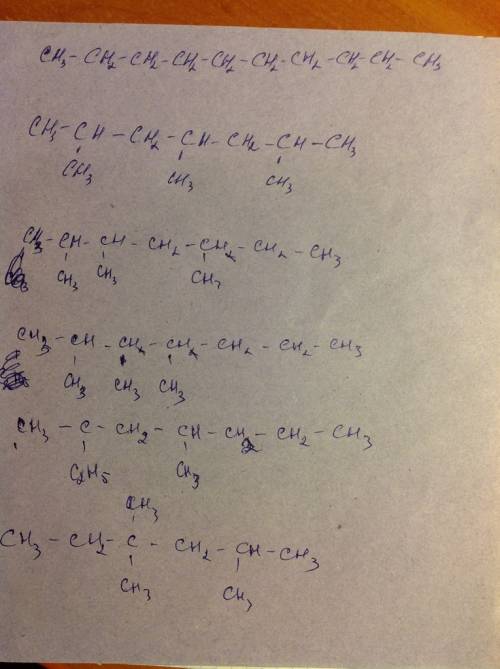 CH3 - CH2 - CH2 - CH2 - CH2 - CH2 - CH2 - CH2 - CH2 - CH3
CH3 - CH - CH2 - CH - CH2 - CH - CH3
CH3 CH3 CH3
CH3 - CH - CH - CH2 - CH2 - CH2 - CH3
CH3 CH3 CH3
CH3 - CH - CH2 - CH2 - CH2 - CH2 - CH3
CH3 CH3 CH3
CH3 - C - CH2 - CH - CH2 - CH2 - CH3
C2H5 CH3
CH3
CH3 - CH2 - C - CH2 - CH - CH3
CH3 CH3